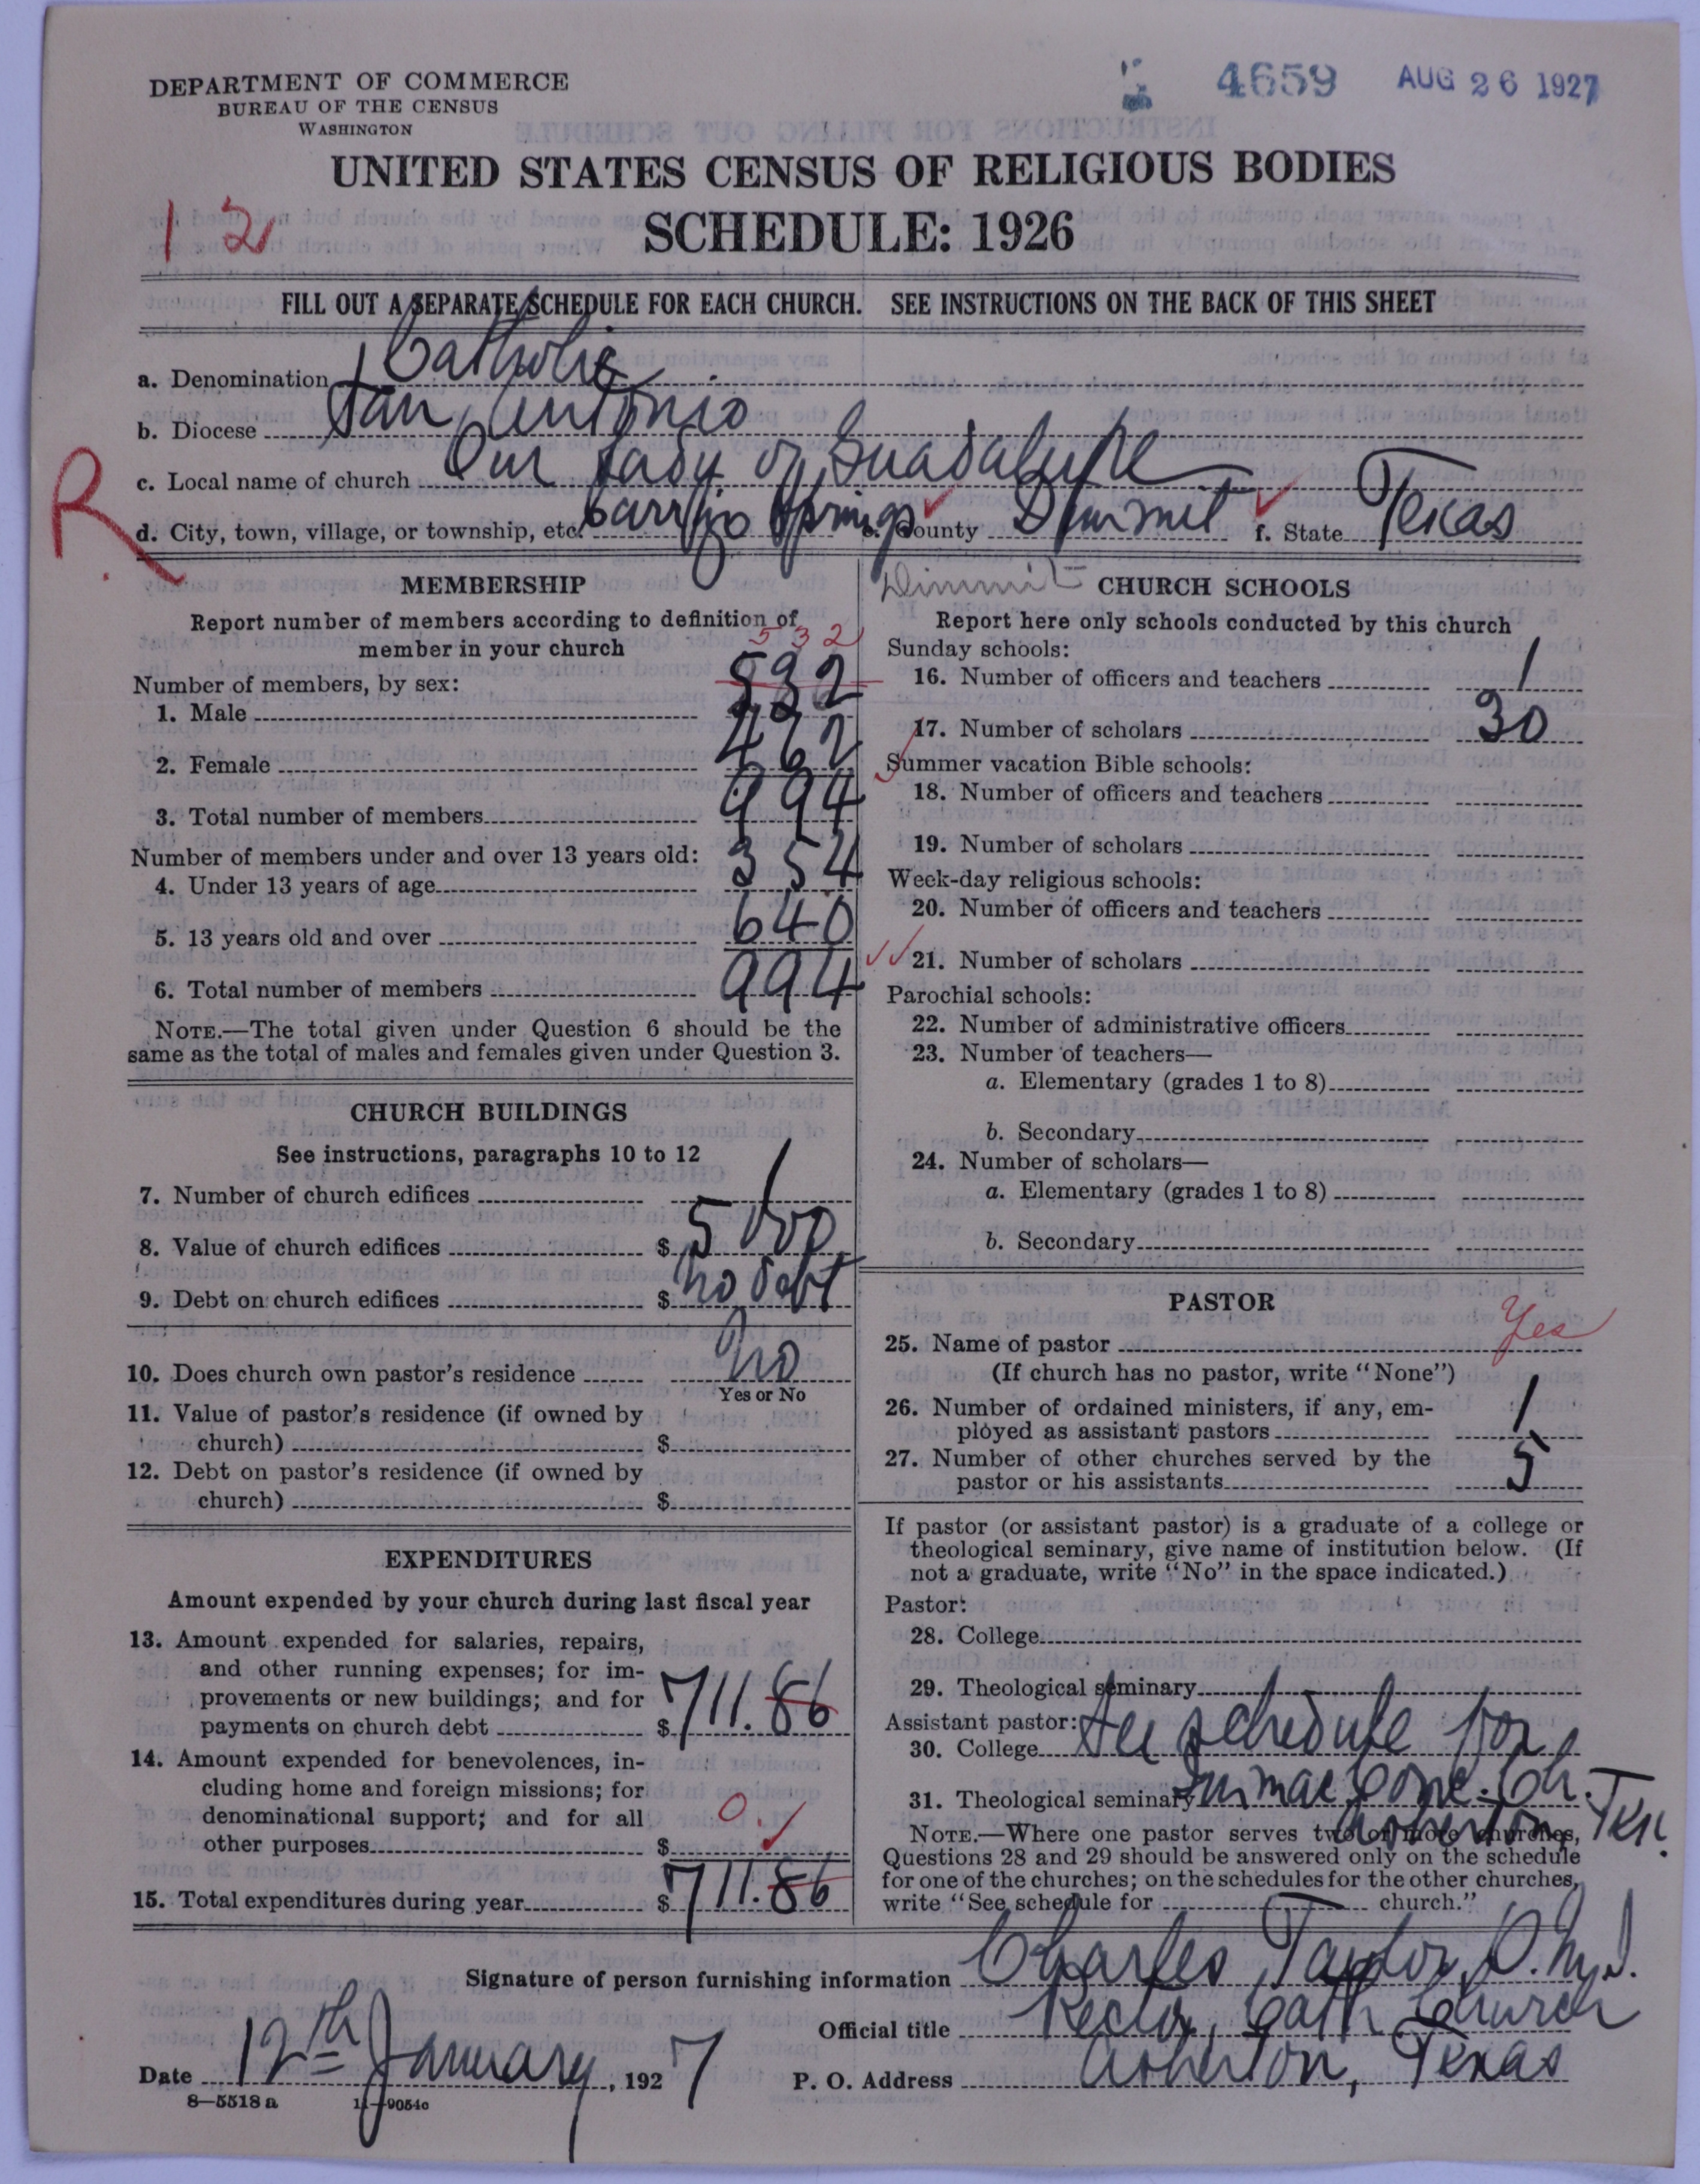 4659 AUG 26 1927
DEPARTMENT OF COMMERCE
BUREAU OF THE CENSUS
WASHINGTON
UNITED STATES CENSUS OF RELIGIOUS BODIES
SCHEDULE: 1926
12
FILL OUT A SEPARATE SCHEDULE FOR EACH CHURCH. SEE INSTRUCTIONS ON THE BACK OF THIS SHEET
a. Denomination Catholic
b. Diocese San Antonio
c. Local name of church Our Lady of Guadalupe
R
d. City, town, village, or township, etc. Carrizo Springs e. County Dimmit f. State Texas
Dimmit
MEMBERSHIP
Report number of members according to definition of
member in your church
532
Number of members, by sex:
1. Male 532
2. Female 462
3. Total number of members 994
Number of members under and over 13 years old:
4. Under 13 years of age 354
5. 13 years old and over 640
6. Total number of members 994
NOTE.—The total given under Question 6 should be the
same as the total of males and females given under Question 3.
CHURCH BUILDINGS
See instructions, paragraphs 10 to 12
7. Number of church edifices 1
8. Value of church edifices $ 5000
9. Debt on church edifices $ no debt
10. Does church own pastor's residence no
Yes or No
11. Value of pastor's residence (if owned by
church) $
12. Debt on pastor's residence (if owned by
church) $
EXPENDITURES
Amount expended by your church during last fiscal year
13. Amount expended for salaries, repairs,
and other running expenses; for im-
provements or new buildings; and for
payments on church debt $ 711.86
14. Amount expended for benevolences, in-
cluding home and foreign missions; for
denominational support; and for all
other purposes $ 0.
15. Total expenditures during year $ 711.86
CHURCH SCHOOLS
Report here only schools conducted by this church
Sunday schools:
16. Number of officers and teachers 1
17. Number of scholars 30
Summer vacation Bible schools:
18. Number of officers and teachers
19. Number of scholars
Week-day religious schools:
20. Number of officers and teachers
21. Number of scholars
Parochial schools:
22. Number of administrative officers
23. Number of teachers—
a. Elementary (grades 1 to 8)
b. Secondary
24. Number of scholars—
a. Elementary (grades 1 to 8)
b. Secondary
PASTOR
25. Name of pastor Yes
(If church has no pastor, write "None")
26. Number of ordained ministers, if any, em-
ployed as assistant pastors 1
27. Number of other churches served by the
pastor or his assistants 5
If pastor (or assistant pastor) is a graduate of a college or
theological seminary, give name of institution below. (If
not a graduate, write "No" in the space indicated.)
Pastor:
28. College
29. Theological seminary
Assistant pastor:
30. College See schedule for
31. Theological seminary Immac. Conc. Ch.
Asherton, Tex.
NOTE.—Where one pastor serves two or more churches,
Questions 28 and 29 should be answered only on the schedule
for one of the churches; on the schedules for the other churches,
write "See schedule for church."
Signature of person furnishing information Charles Taylor, O.M.I.
Official title Rector, Cath Church
Date 12th January, 1927 P. O. Address Asherton, Texas
8—5518 a 11—9054c